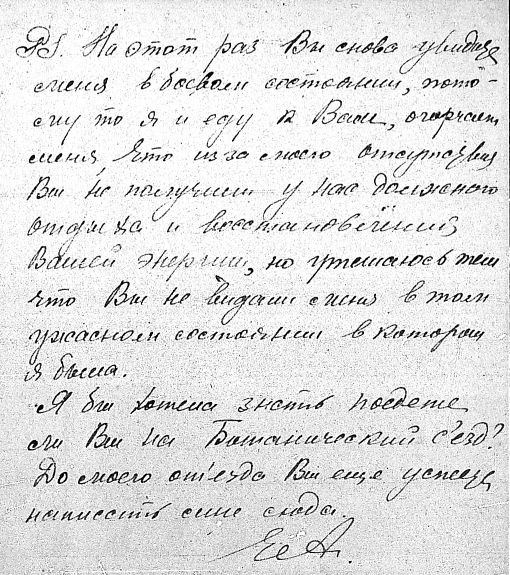 PS. На этот раз Вы снова увидите
меня в боевом состоянии, пото-
му то я и еду к Вам, огорчает
меня, что из за моего отсутствия
Вы не получили у нас должного
отдыха и восстановлений
Вашей энергии, но утешаюсь тем
что Вы не видали меня в том
ужасном состоянии в котором
я была.
Я бы хотела знать поедете
ли Вы на Ботанический с'езд?
До моего от'езда Вы еще успеете
написать мне сюда.